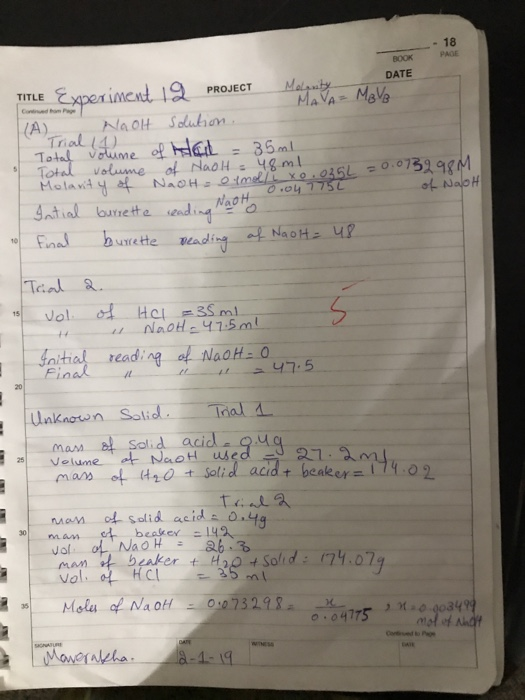 18
BOOK PAGE
DATE
TITLE Experiment 12 PROJECT Molarity
MAVA = MBVB
Continued from Page
(A) NaOH Solution.
Trial (1)
Total volume of HCl = 35ml
5 Total volume of NaOH = 48ml
Molarity of NaOH = 0.1mol/L x 0.035L / 0.04775L = 0.073298M of NaOH
Initial burrette reading NaOH = 0
10 Final burrette reading of NaOH = 48
Trial 2.
15 Vol. of HCl = 35ml 5
" " NaOH = 47.5ml
Initial reading of NaOH = 0
Final " " " = 47.5
20
Unknown Solid. Trial 1
mass of solid acid = 0.4g
25 Volume of NaOH used = 27.2ml
mass of H2O + solid acid + beaker = 174.02
Trial 2
mass of solid acid = 0.4g
30 mass of beaker = 142
vol. of NaOH = 26.3
mass of beaker + H2O + Solid = 174.07g
Vol. of HCl = 35ml
35 Moles of NaOH = 0.073298 = x / 0.04775 , x = 0.003499 mol of NaOH
Continued to Page
SIGNATURE DATE WITNESS DATE
2-1-19